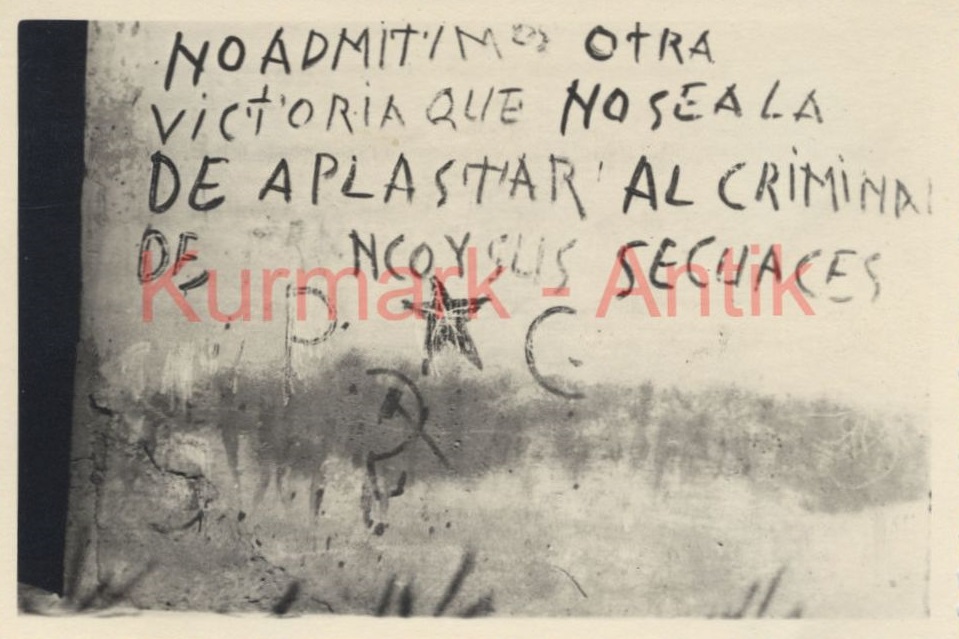 NO ADMITIMOS OTRA
VICTORIA QUE NO SEA LA
DE APLASTAR AL CRIMINAL
DE NCO Y SUS SECUACES
Kurmark - Antik
P. C.
E